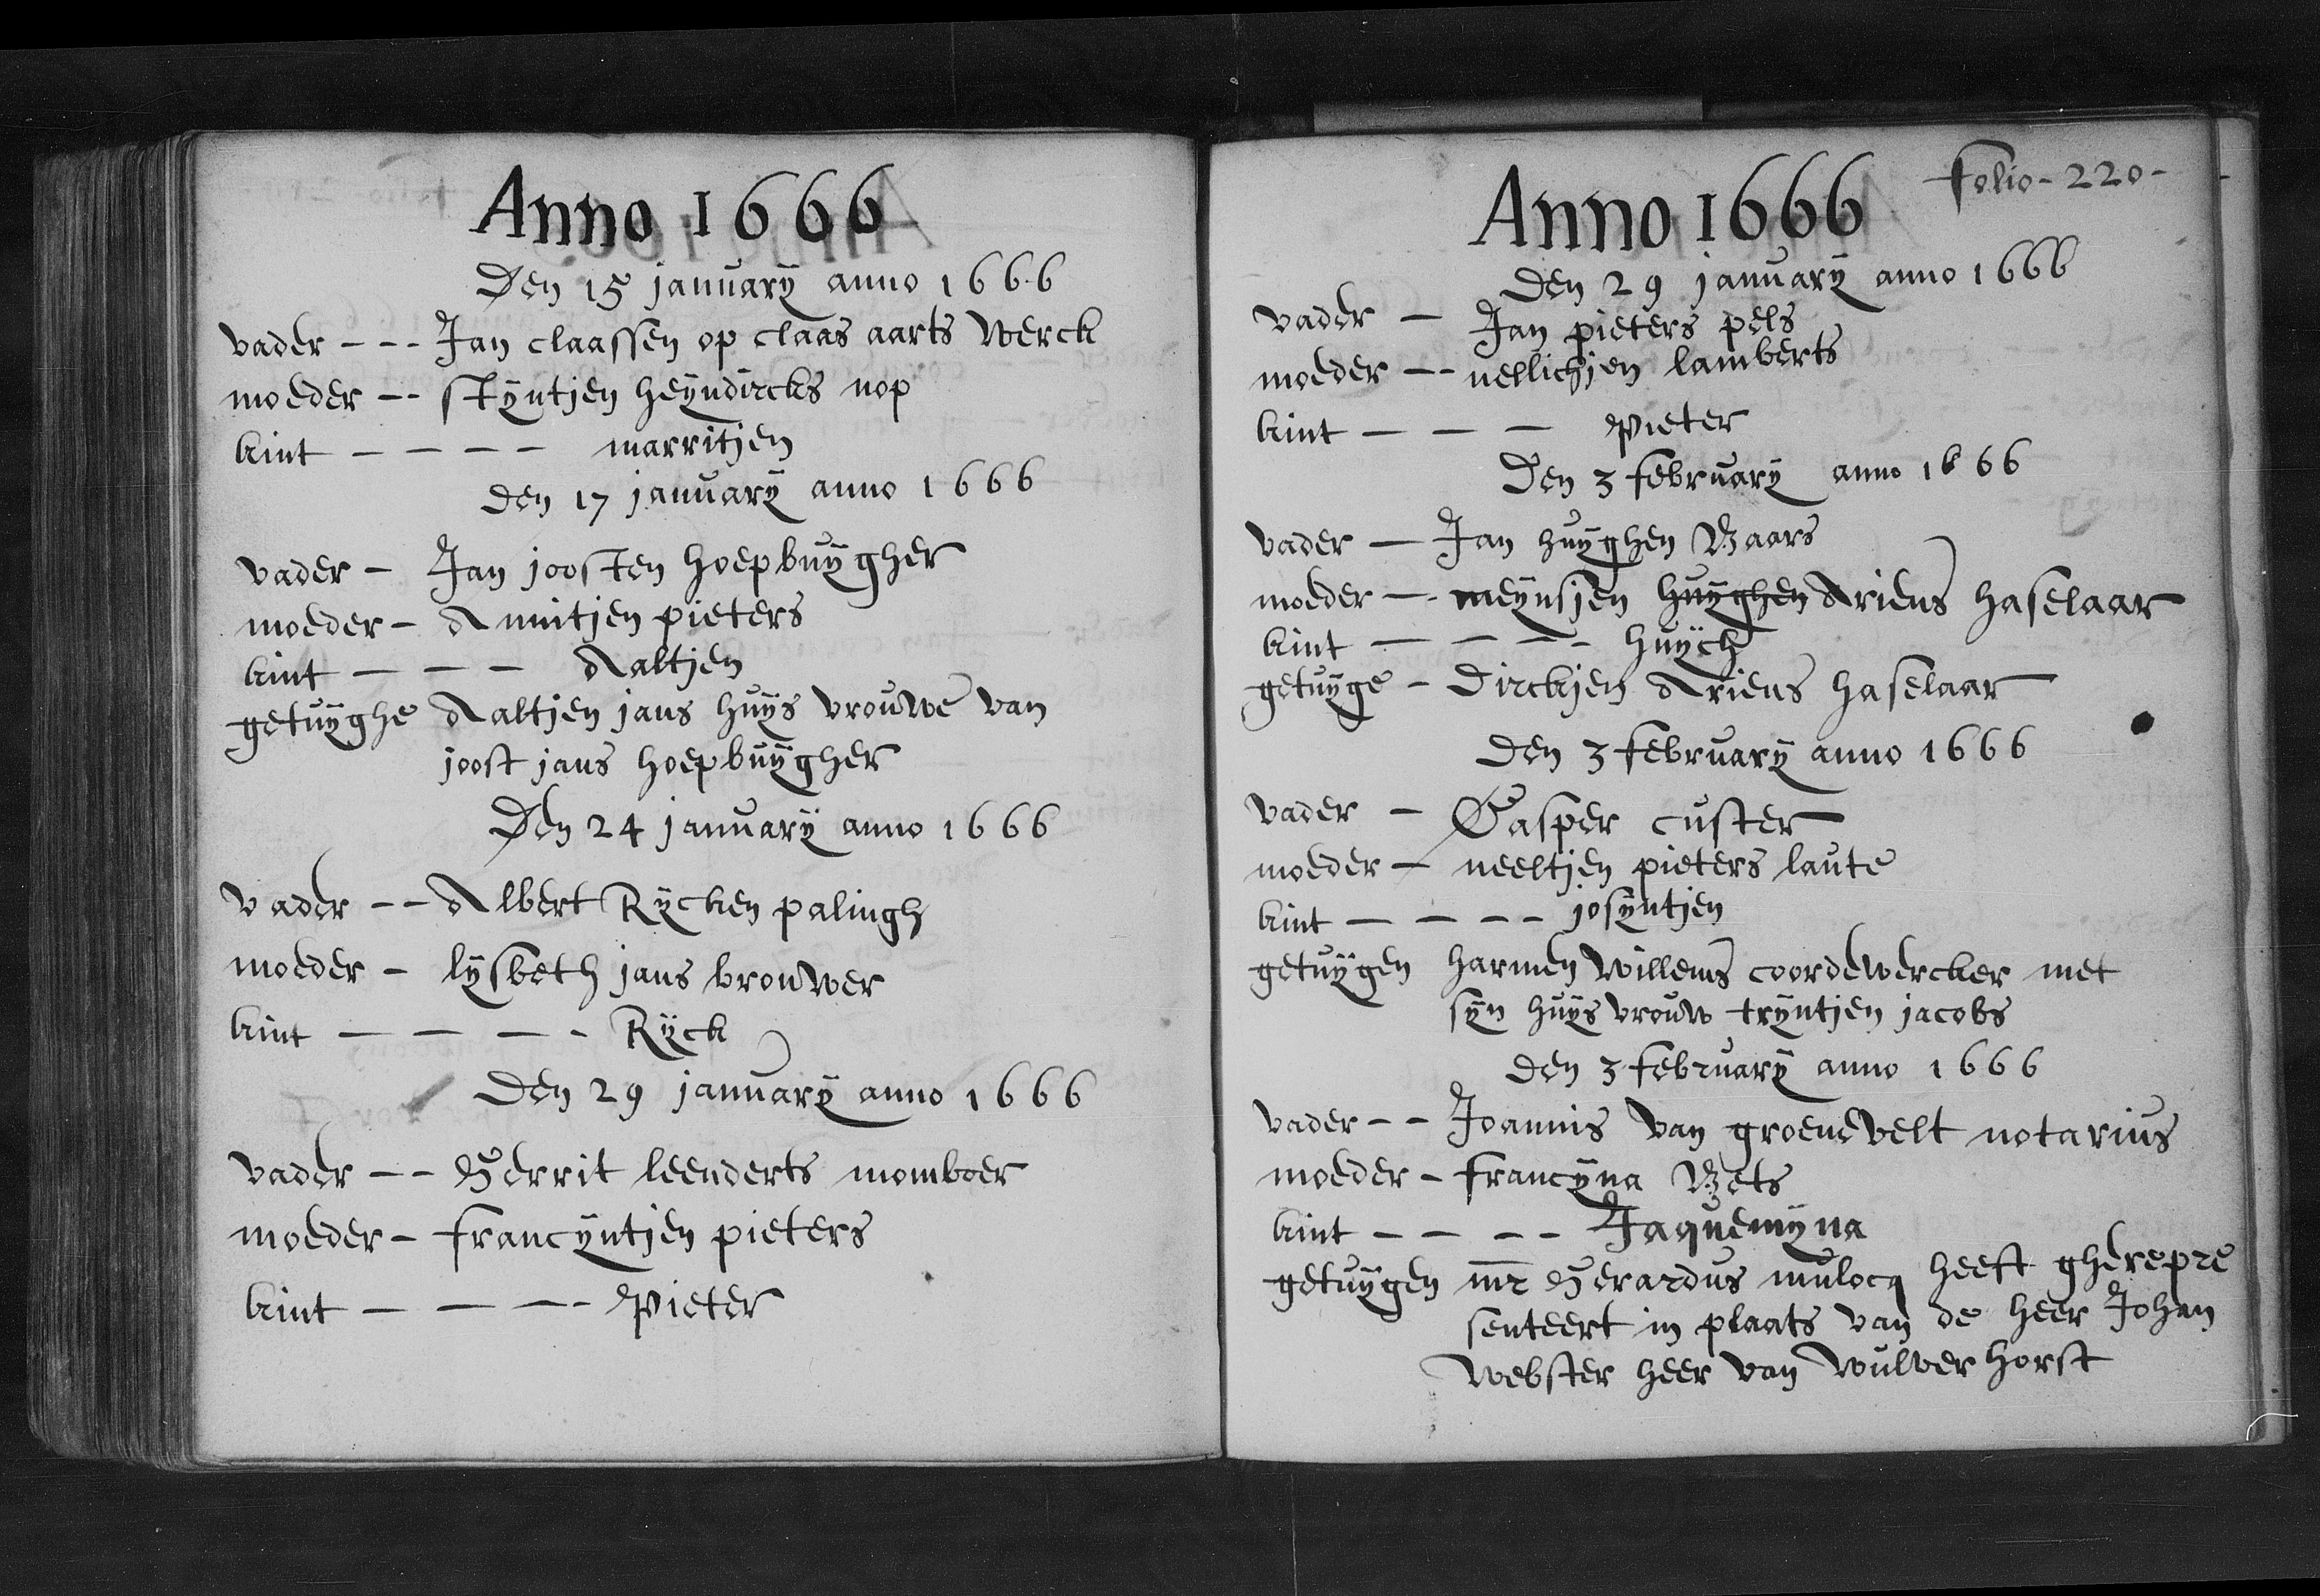 Anno 1666
Den 15 january anno 1666
vader - - - Jan claassen op claas aarts werck
moeder - - styntjen heyndircks nop
kint - - - - marritjen
den 17 january anno 1666
vader - Jan joosten hoepbuygher
moeder - Annitjen pieters
kint - - - Aaltjen
getuyghe Aaltjen jans huys vrouwe van
joost jans hoepbuygher
Den 24 january anno 1666
vader - - Albert Rycken palingh
moeder - lysbeth jans brouwer
kint - - - - Ryck
Den 29 january anno 1666
vader - - Gerrit leenderts momboer
moeder - francyntjen pieters
kint - - - - Pieter
folio - 220 -
Anno 1666
Den 29 january anno 1666
vader - Jan pieters pels
moeder - - nellichjen lamberts
kint - - - Pieter
Den 3 february anno 1666
vader - Jan huyghen Baars
moeder - meynsjen huyghen Ariens haselaar
kint - - - - huych
getuyge - Dirckjen Ariens haselaar
Den 3 february anno 1666
vader - Casper custer
moeder - neeltjen pieters laute
kint - - - - josyntjen
getuygen harmen willems coordewercker met
syn huys vrouw tryntjen jacobs
den 3 february anno 1666
vader - - Joannis van groenevelt notarius
moeder - francyna Bets
kint - - - - Jaquemyna
getuygen mr Gerardus mulocq heeft gherepre
senteert in plaats van de heer Johan
webster heer van wulverhorst